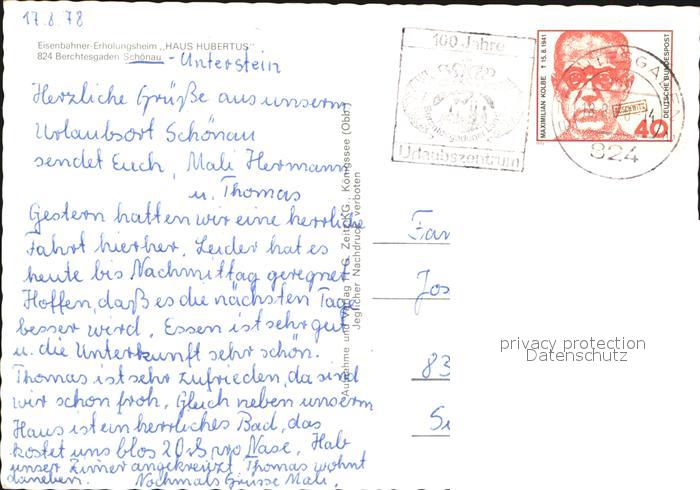 17.8.78
Eisenbahner-Erholungsheim „HAUS HUBERTUS"
824 Berchtesgaden Schönau - Unterstein
Herzliche Grüße aus unserm
Urlaubsort Schönau
sendet Euch, Mali Hermann
u. Thomas
Gestern hatten wir eine herrliche
Fahrt hierher. Leider hat es
heute bis Nachmittag geregnet
Hoffen, daß es die nächsten Tage
besser wird. Essen ist sehr gut
u. die Unterkunft sehr schön.
Thomas ist sehr zufrieden, da sind
wir schon froh. Gleich neben unserm
Haus ist ein herrliches Bad, das
kostet uns blos 20 pro Nase. Hab
unser Zimmer angekreuzt, Thomas wohnt
daneben. Nochmals Grüsse Mali,
Aufnahme und Verlag H. G. Zeitz KG., Königssee (Obb)
Jeglicher Nachdruck verboten
100 Jahre
Urlaubszentrum
MAXIMILIAN KOLBE † 15.8.1941
DEUTSCHE BUNDESPOST
AUSCHWITZ
40
824
Fam
Jos
83
Si
privacy protection
Datenschutz